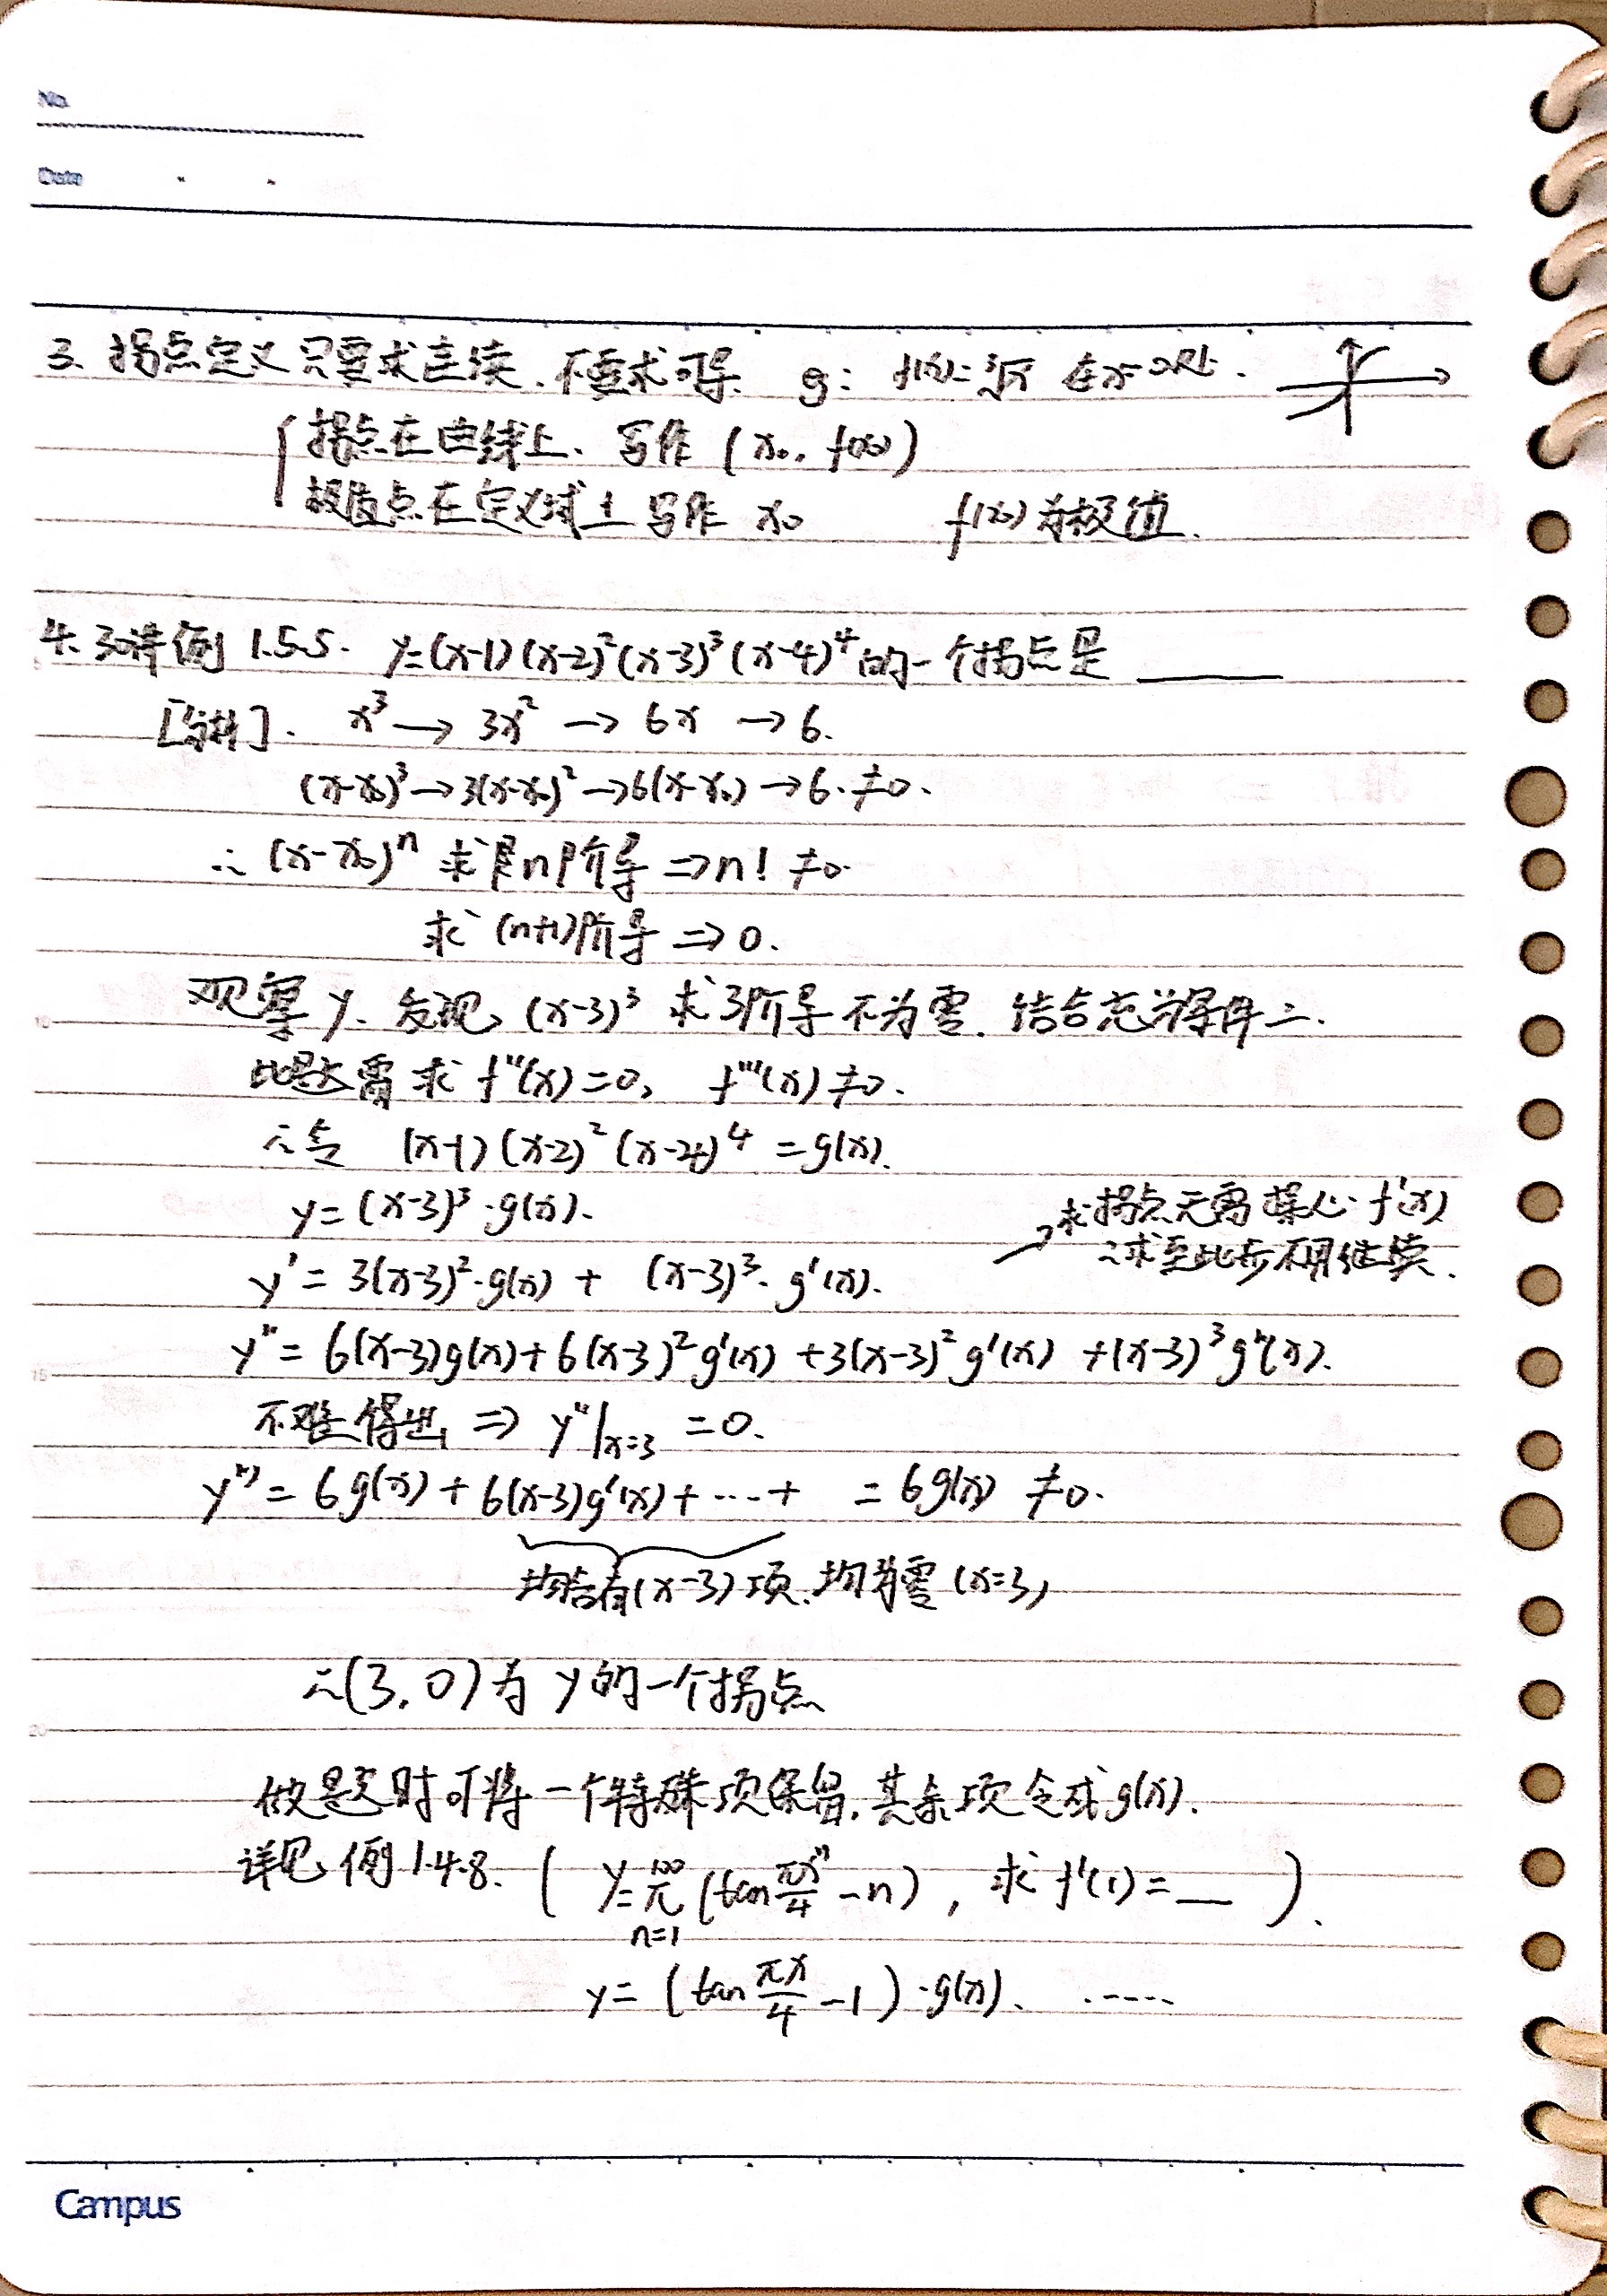 No.
Date
3. 拐点定义只要求连续、不要求可导. eg: f(x)=∛x 在x=0处.
拐点在曲线上、写作 (x₀, f(x₀))
极值点在定义域上 写作 x₀ f(x₀)为极值.
4. 30讲例 1.5.5. y=(x-1)(x-2)²(x-3)³(x-4)⁴的一个拐点是 ____
[分析]. x³→3x²→6x→6.
(x-x₀)³→3(x-x₀)²→6(x-x₀)→6.≠0.
∴(x-x₀)ⁿ 求n阶导⇒n! ≠0.
求(n+1)阶导⇒0.
观察y、发现(x-3)³求3阶导不为零. 结合充分条件二.
此题需求f''(x)=0, f'''(x)≠0.
∴令 (x-1)(x-2)²(x-4)⁴=g(x).
y=(x-3)³·g(x).
求拐点无需操心f'(x)
∴求至此步不用继续.
y'=3(x-3)²·g(x)+(x-3)³·g'(x).
y''=6(x-3)g(x)+6(x-3)²g'(x)+3(x-3)²g'(x)+(x-3)³g''(x).
不难得出⇒y''|x=3 =0.
y'''=6g(x)+6(x-3)g'(x)+…+ =6g(x)≠0.
均含有(x-3)项.均为零(x=3)
∴(3,0)为y的一个拐点
做题时可将一个特殊项保留.其余项令成g(x).
详见例1.4.8. ( y=π (tan πxⁿ/4 -n), 求f'(1)=__ ).
100
n=1
y=(tan πx/4 -1)·g(x). ……
10
15
20
Campus